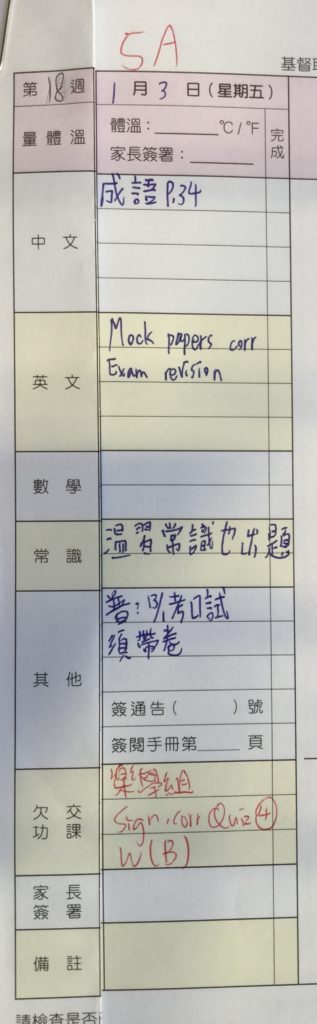 5A
基督
第18週 1月3日(星期五)
量體溫 體溫：______℃/℉ 完成
家長簽署：______
中文 成語 P.34
英文 Mock papers corr
Exam revision
數學
常識 溫習常識七出題
其他 普：13/1考口試
須帶卷
簽通告( )號
簽閱手冊第____頁
欠交功課 樂學組
Sign, corr Quiz ④
W(B)
家長簽署
備註
請檢查是否